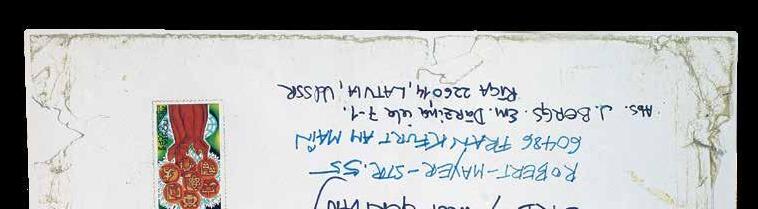 ROBERT-MAYER-STR. 55
60486 FRANKFURT AM MAIN
Abs. J. BERGS. Em. Dārziņa iela 7-1.
RĪGA 226014, LATVIA, USSR